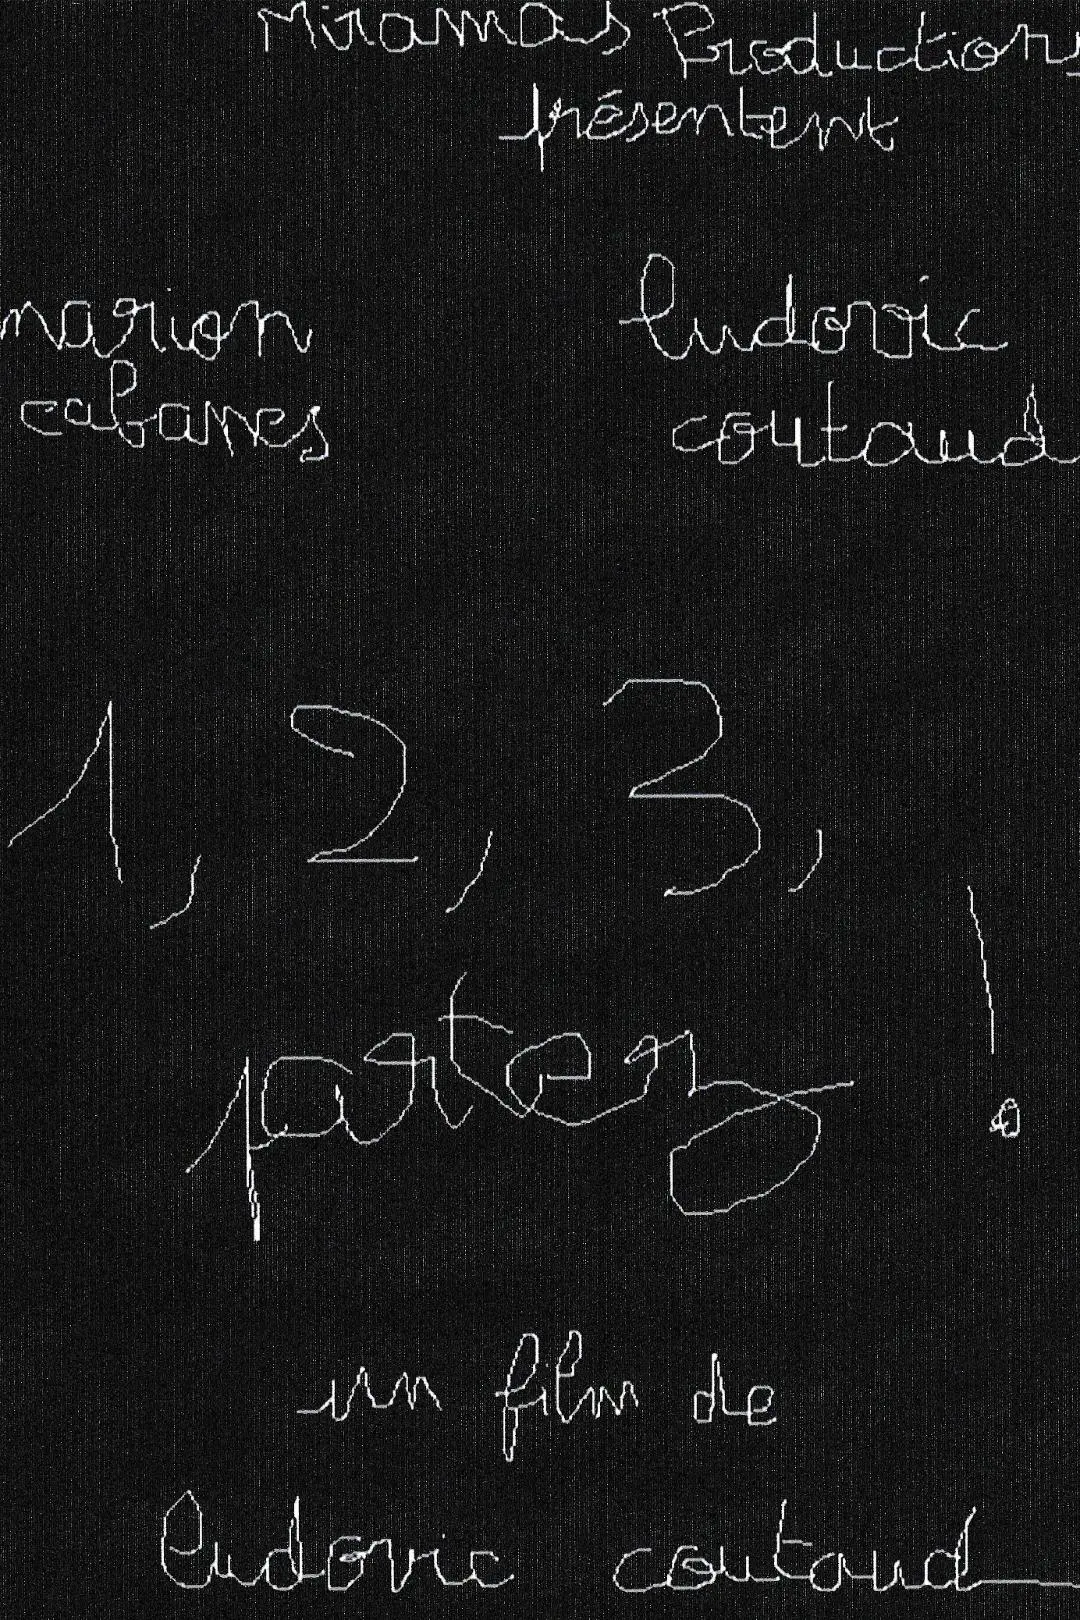 Miramas Productions
présentent
marion ludovic
cabanes coutaud
1, 2, 3,
partez !
un film de
ludovic coutaud